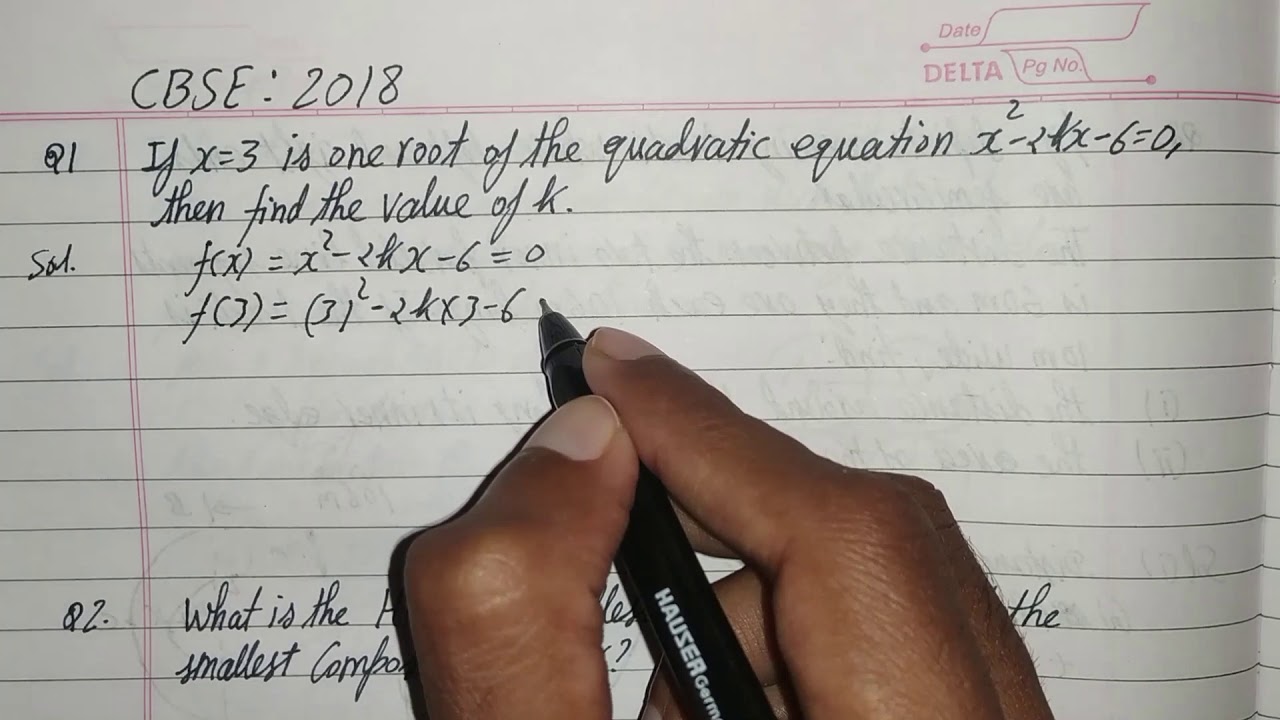 Date
DELTA Pg No.
CBSE: 2018
Q1 If x=3 is one root of the quadratic equation x²-2kx-6=0,
then find the value of k.
Sol. f(x) = x²-2kx-6=0
f(3) = (3)²-2k×3-6
Q2. What is the the
smallest ?
HAUSER